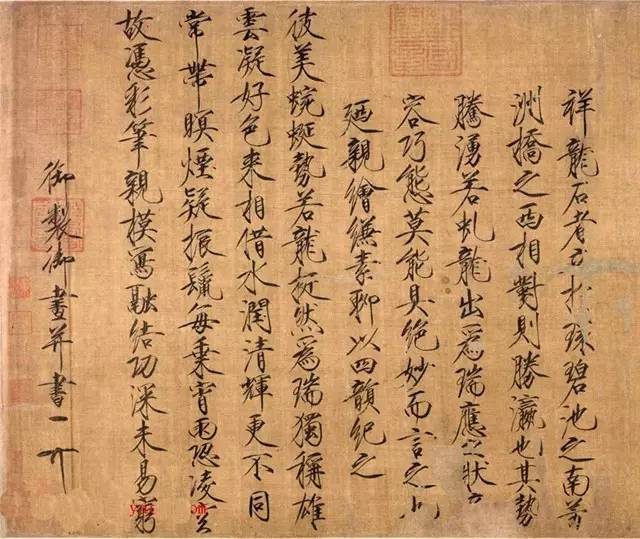 祥龍石者立於環碧池之南芳
洲橋之西相對則勝瀛也其勢
騰湧若虬龍出爲瑞應之狀奇
容巧態莫能具絶妙而言之也
廼親繪縑素聊以四韻紀之
彼美蜿蜒勢若龍挺然爲瑞獨稱雄
雲凝好色來相借水潤清輝更不同
常帶瞑煙疑振鬣每乘宵雨恐凌空
故憑彩筆親模寫融結功深未易窮
御製御畫并書